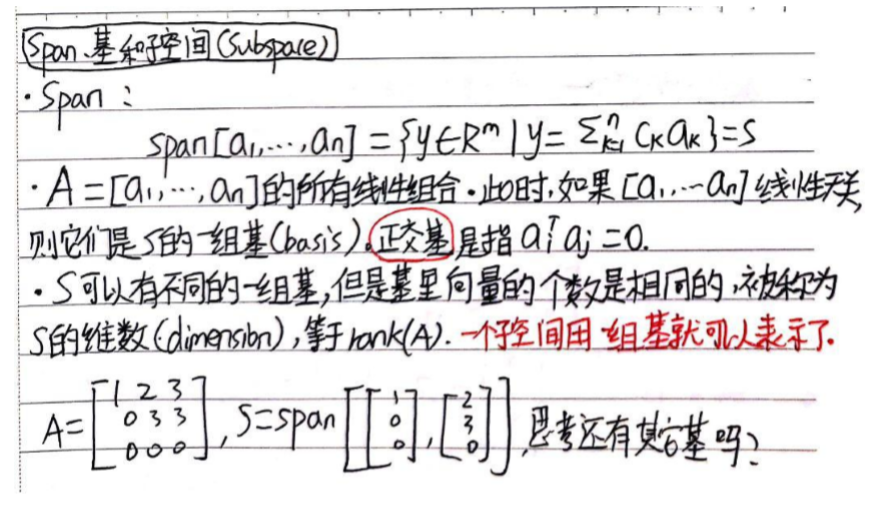 Span、基和子空间(Subspace)
·Span:
span[a₁,…,aₙ]={y∈Rᵐ|y=Σₖ₌₁ⁿ Cₖaₖ}=S
·A=[a₁,…,aₙ]的所有线性组合.此时,如果[a₁,…aₙ]线性无关,
则它们是S的一组基(basis)。正交基是指aᵢᵀaⱼ=0.
·S可以有不同的一组基,但是基里向量的个数是相同的,被称为
S的维数(dimension),等于rank(A).一个子空间用一组基就可以表示了.
A=[1 2 3; 0 3 3; 0 0 0],S=span[[1; 0; 0],[2; 3; 0]],思考还有其它基吗?